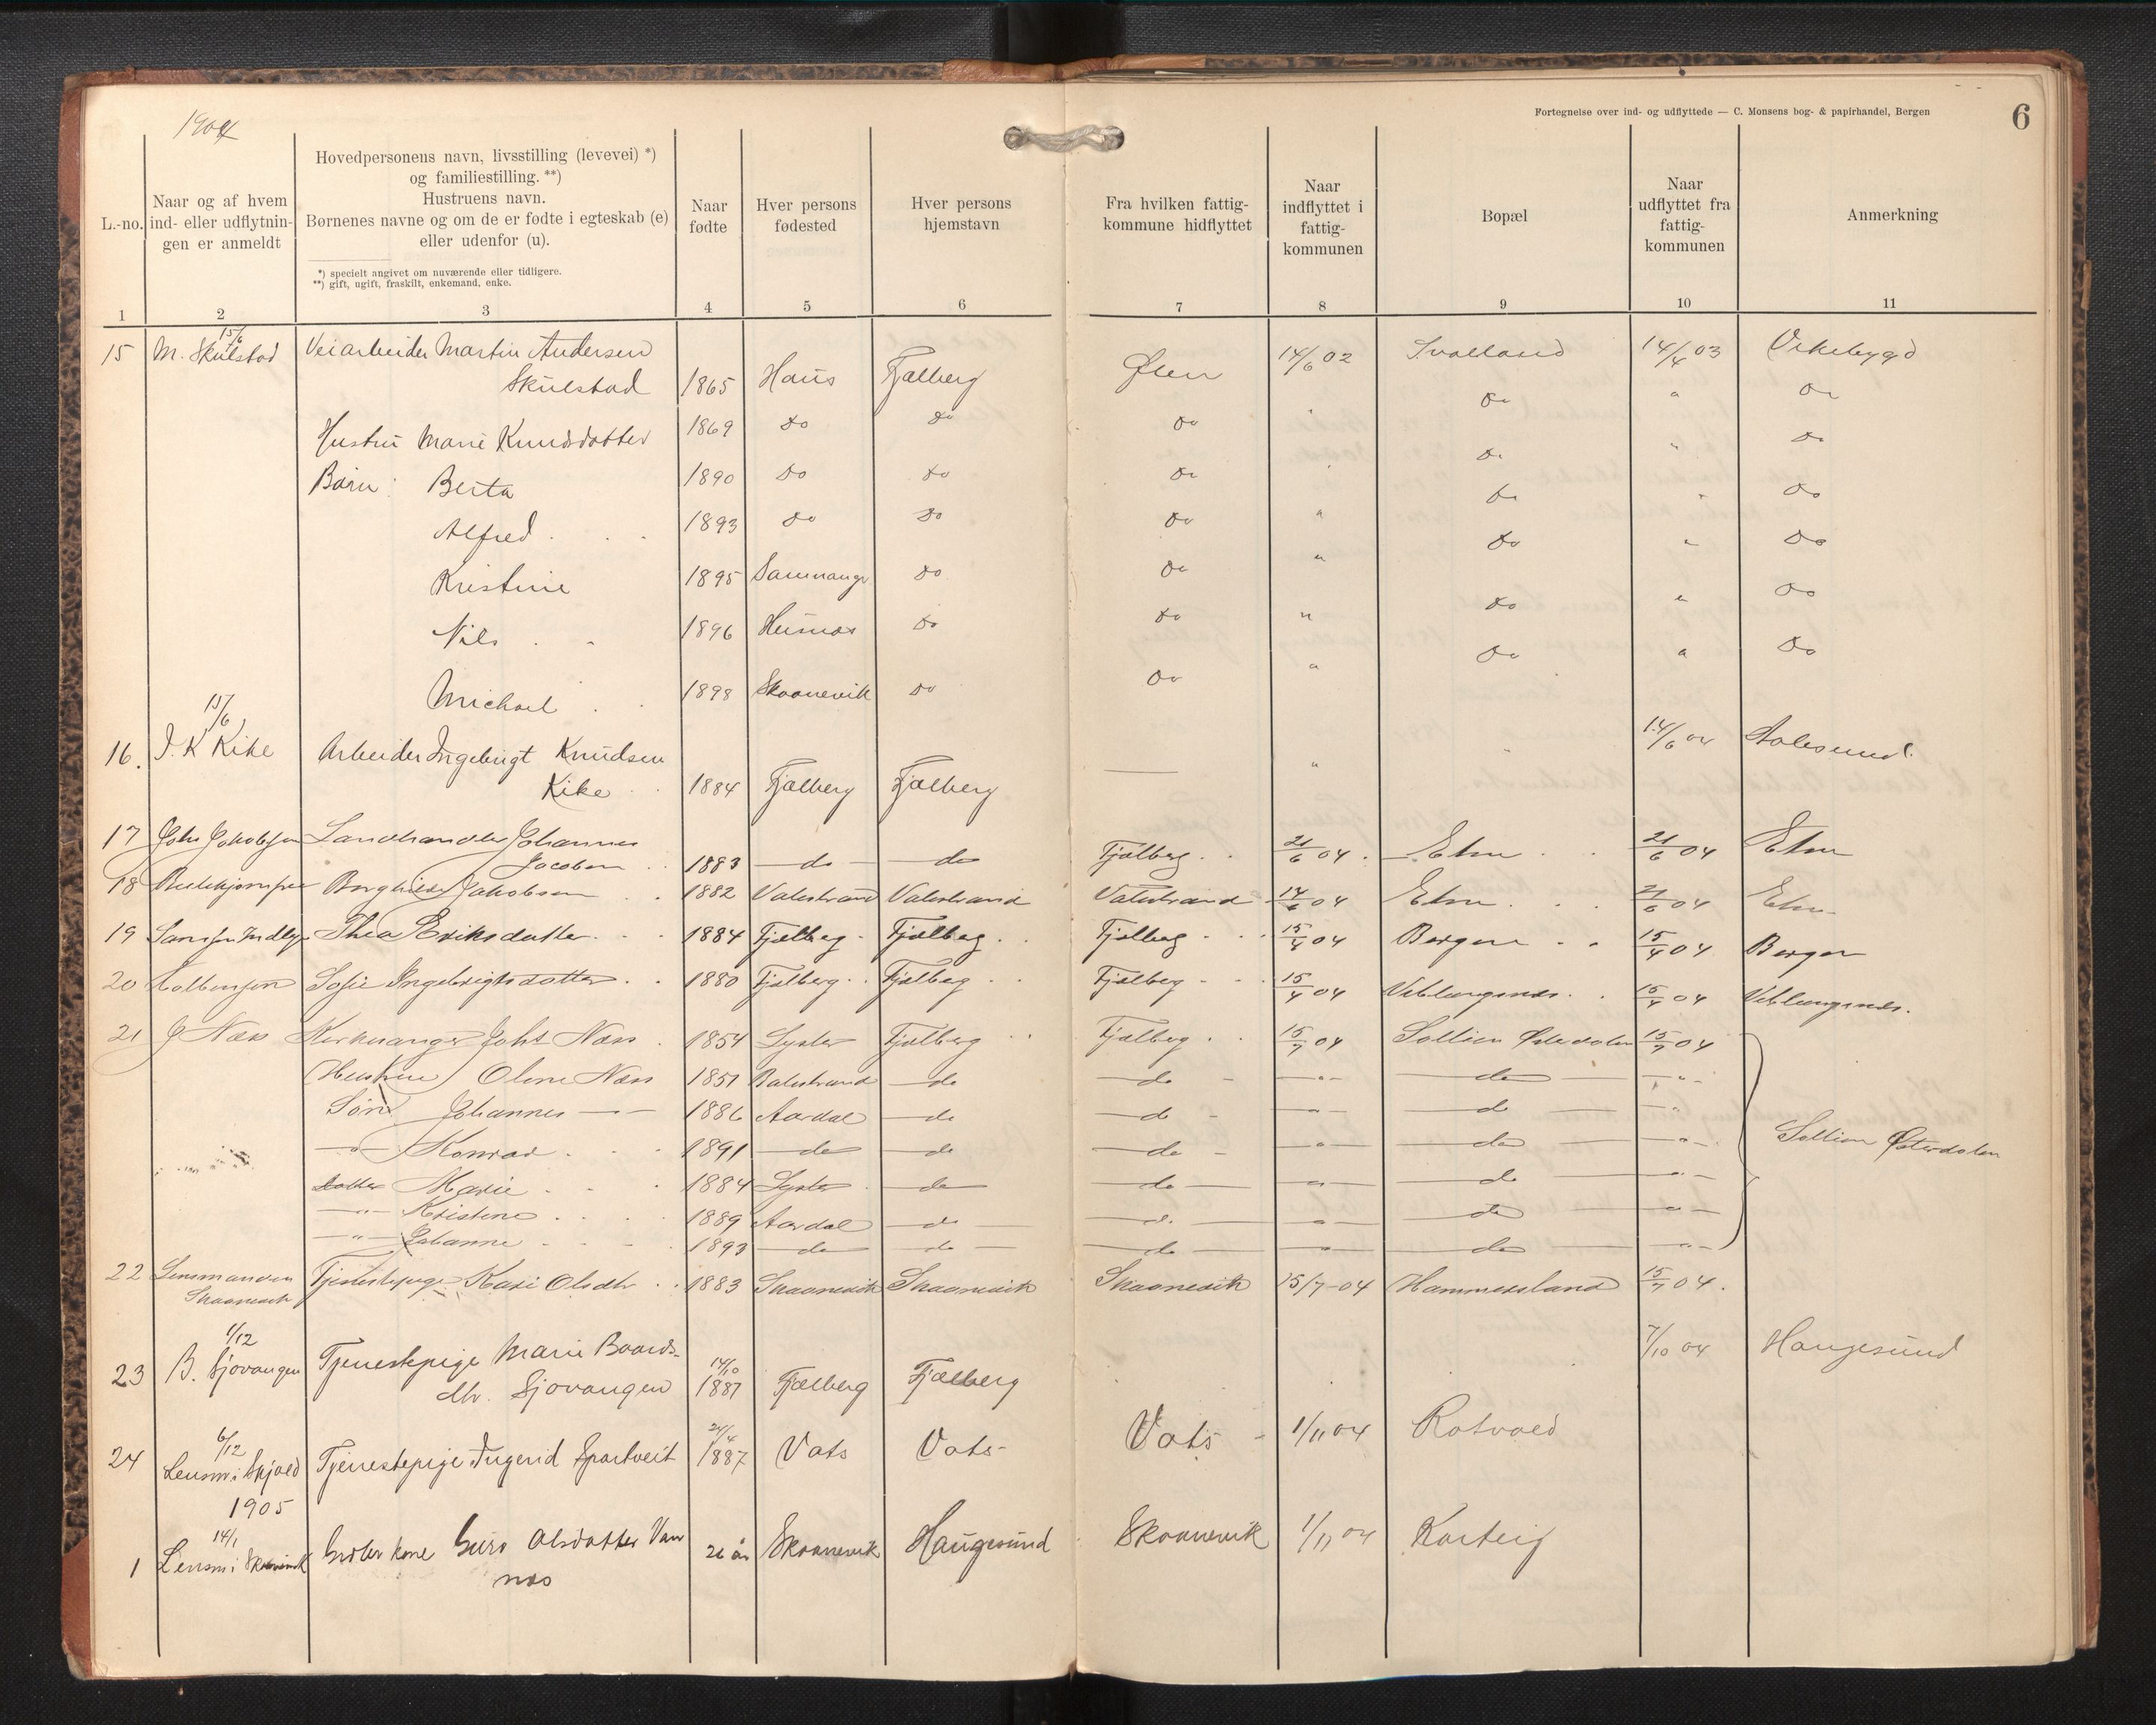 1904
Fortegnelse over ind- og udflyttede — C. Monsens bog- & papirhandel, Bergen
6
L.-no.
Naar og af hvem
ind- eller udflytnin-
gen er anmeldt
Hovedpersonens navn, livsstilling (levevei) *)
og familiestilling. **)
Hustruens navn.
Børnenes navne og om de er fødte i egteskab (e)
eller udenfor (u).
*) specielt angivet om nuværende eller tidligere.
**) gift, ugift, fraskilt, enkemand, enke.
Naar
fødte
Hver persons
fødested
Hver persons
hjemstavn
Fra hvilken fattig-
kommune hidflyttet
Naar
indflyttet i
fattig-
kommunen
Bopæl
Naar
udflyttet fra
fattig-
kommunen
Anmerkning
1 2 3 4 5 6 7 8 9 10 11
15/6
15 M. Skulstad Veiarbeider Martin Andersen 14/6 02 Svolland 14/4 03 Vikebygd
Skulstad 1865 Haus Fjælberg Ølen
Hustru Marie Knudsdatter 1869 do do do " do " do
Børn: Berta 1890 do do do " do " do
Alfred 1893 do do do " do " do
Kristine 1895 Samnanger do do " do " do
Nils 1896 Husnæs do do " do " do
Michael 1898 Skaanevik do do " do " do
15/6
16. I. K Kike Arbeider Ingebrigt Knudsen 14/6 04 Aalesund.
Kike 1884 Fjælberg Fjælberg — "
17 Johs Jakobsen Landhandler Johannes
Jacobsen 1883 — do — do Fjælberg 21/6 04. Etne 21/6 04 Etne
18 Borghild Jakobsen 1882 Valestrand Valestrand Valestrand 14/6 04 Etne 21/6 04 Etne
19 Thea Eriksdatter 1884 Fjælberg Fjælberg Fjælberg 15/4 04 Bergen 15/4 04 Bergen
20 Sofie Ingebrigtsdatter 1880 Fjælberg Fjælberg Fjælberg 15/4 04 Veblungsnes 15/4 04 Veblungsnes.
21 J Næss Kirkesanger Johs Næss 1854 Lyster Fjælberg Fjælberg 15/7 04 Sollien Østerdalen 15/7 04
(Hustru) Oline Næss 1851 Balestrand — do — do — " — do — "
Søn Johannes 1886 Aardal — do — do — " — do — "
— " — Konrad 1891 — do — do — do — " — do — " Sollien Østerdalen
Datter Marie 1884 Lyster — do — do — " — do — "
— " — Kristine 1889 Aardal — do — do — " — do — "
— " — Johanne 1893 — do — do — do — " — do — "
22 Lensmanden Tjenestepige Kari Olsdtr 1883 Skaanevik Skaanevik Skaanevik 15/7-04 Hammersland 15/7 04.
Skaanevik
1/12
23 B. Sjovangen Tjenestepige Marie Baards- 14/10 7/10 04 Haugesund
dtr. Sjovangen 1887 Fjælberg Fjælberg
6/12
24 Lensm i Skjold Tjenestepige Ingerid Spartveit 1887 Vats Vats Vats 1/11 04 Rotvold
1905
14/1
1 Lensm i Skaanevik kone Guro Olsdatter Van 26 år Skaanevik Haugesund Skaanevik 1/11 04
nes